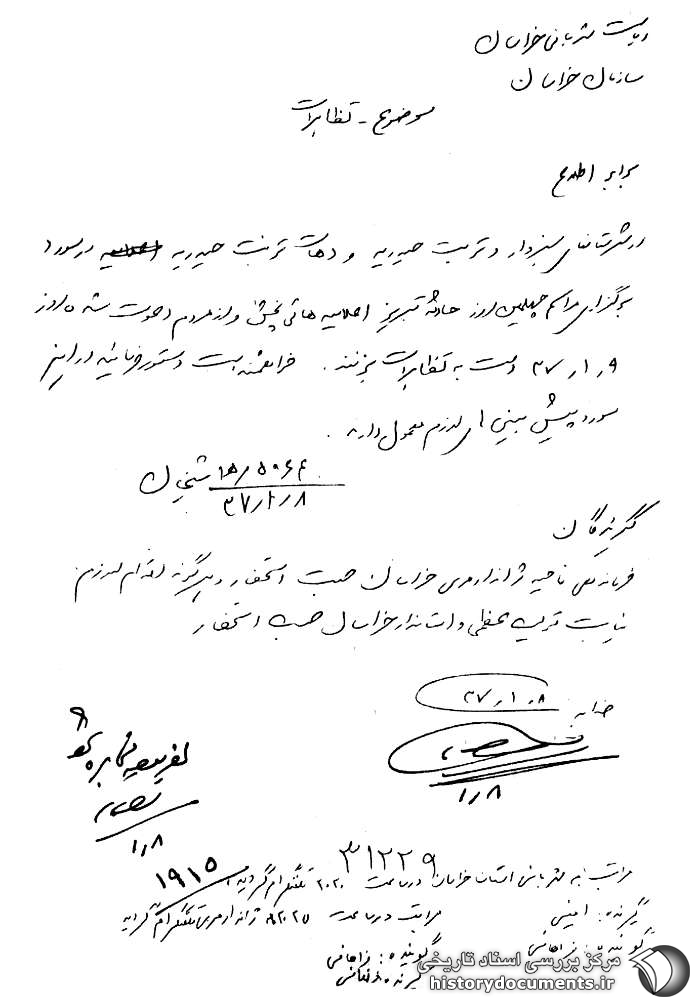 ریاست شهربانی خراسان
سازمان خراسان
موضوع - تظاهرات
برابر اطلاع
در شهرستانهای سبزوار و تربت حیدریه و دهات تربت حیدریه اعلامیه در مورد
برگزاری مراسم چهلمین روز حادثه تبریز اعلامیه هائی پخش و از مردم دعوت شده روز
۳۷٫۱٫۹ دست به تظاهرات بزنند. خواهشمند است دستور فرمائید در این
مورد پیش بینی های لازم معمول دارند.
۱۵/۵۰۶۴
۳۷/۱/۸
گیرندگان
فرماندهی ناحیه ژاندارمری خراسان جهت استحضار و هرگونه اقدام لازم
نیابت تولیت عظمی و استاندار خراسان جهت استحضار
۳۷٫۱٫۸
۱٫۸
۸
۱٫۸
۳۱۲۲۹
مراتب به شهربانی استان خراسان در ساعت ۲۰۲۰ تلفنگرام گردید.
۱۹۱۵
گیرنده: امینی
مراتب در ساعت ۲۰۲۵ به ژاندارمری تلفنگرام گردید
گوینده: فراهانی
گوینده: فراهانی
گیرنده
مرکز بررسی اسناد تاریخی
historydocuments.ir